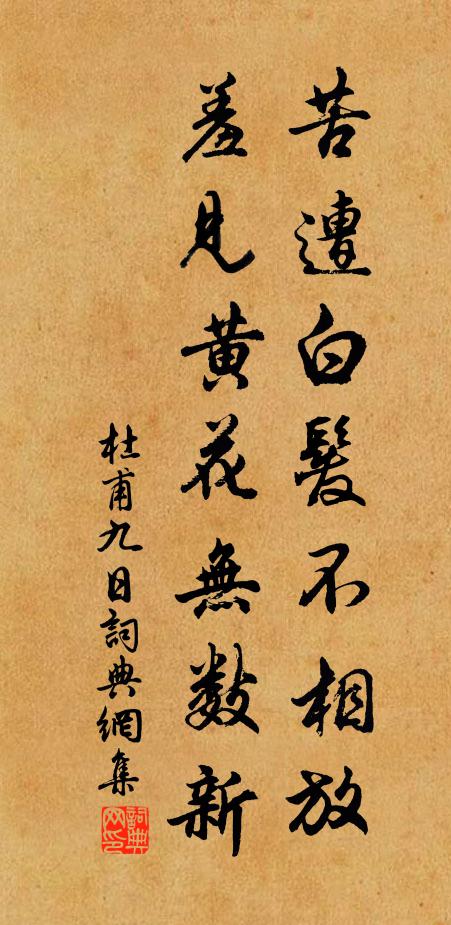 苦遭白髮不相放
羞見黄花無數新
杜甫九日詞典網集
詞典网印